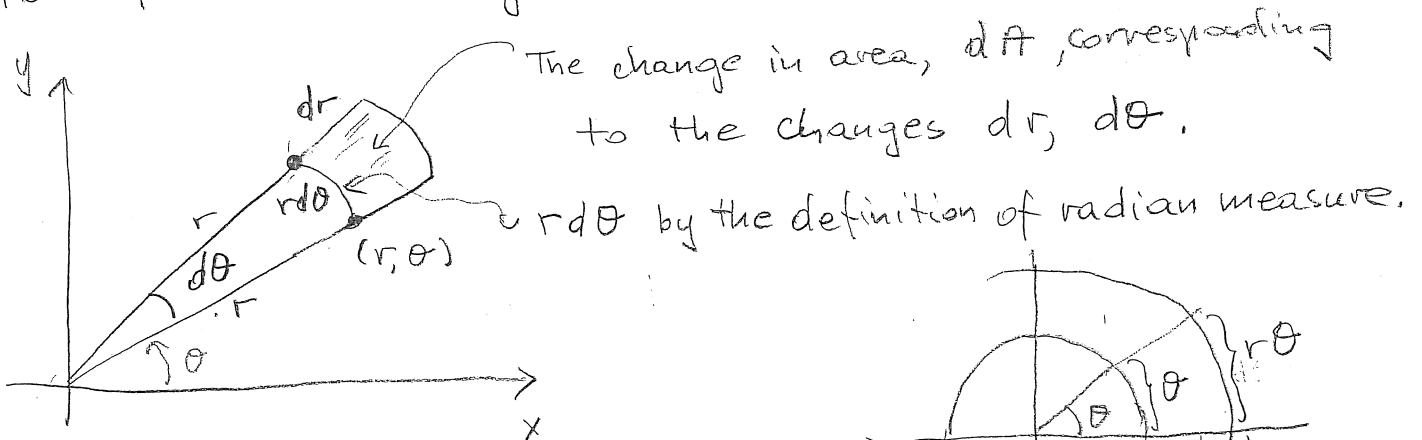 y
The change in area, dA, corresponding
dr
to the changes dr, dθ.
r
rdθ
rdθ by the definition of radian measure.
(r, θ)
dθ
r
θ
x
rθ
θ
θ